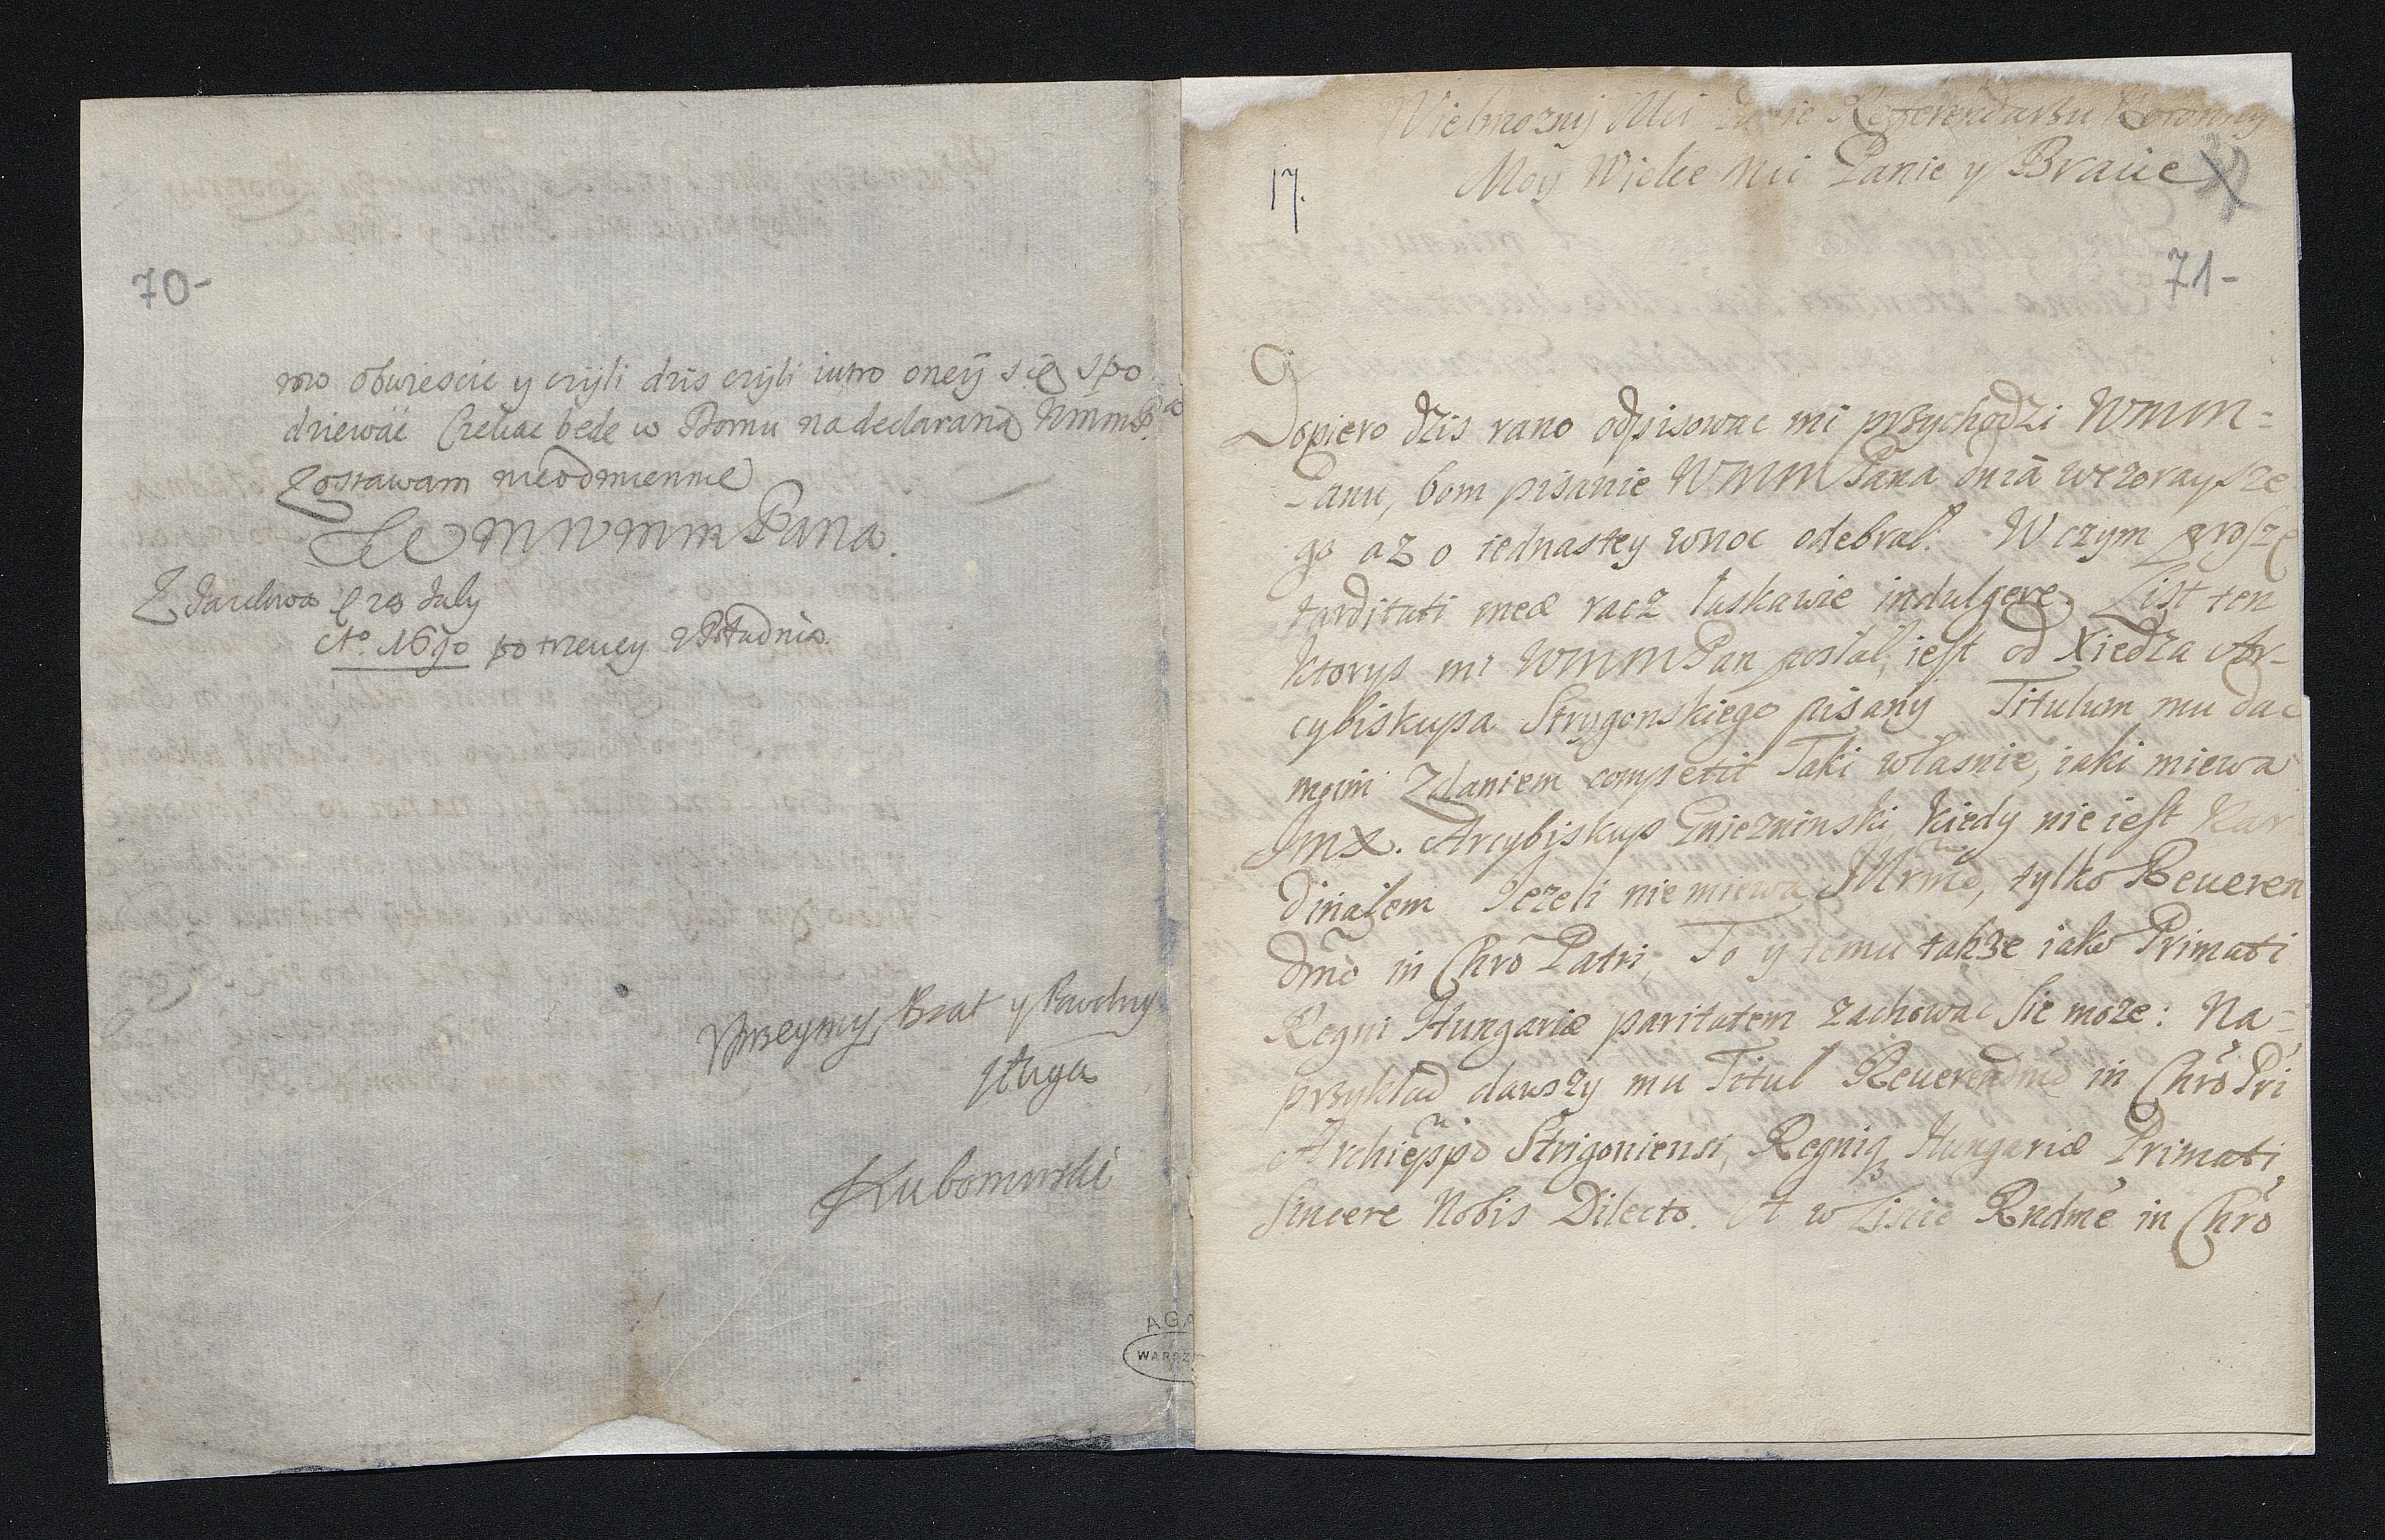 70-
mo obwiescic y czyli dzis czyli iutro oneÿ się spo
dziewać Czekac bede w Domu na declaratią WmmPa
Zostawam nieodmiennie
WmmPana.
Z Jazdowa 20 July
Ao. 1690 po trzeciey z Południa.
Uprzeymy Brat y Powolny
sługa
Lubomirski
AGA
WARSZ
17.
Wielmozny Mci Panie Referendarzu Koronny
Moy Wielce Mci Panie y Bracie
71-
Dopiero dzis rano odpisowac mi przychodzi WMM=
Panu, bom pisanie WMMPana dnia wczoraysze
go az o iednastey wnoc odebrał. W czym proszę
tarditati meæ racz łaskawie indulgere. List ten
ktorys mi WMMPan posłał, iest od Xiedza Ar-
cybiskupa Strygonskiego pisany Titulum mu dac
moim zdaniem competit Taki własnie, iaki miewa
Jmx. Arcybiskup Gniezninski, kiedy nie iest Kar
dinałem Jezeli nie miewa Illrmo, tylko Reueren
dmo in Chro Patri, To y temu takze iako Primati
Regni Hungariæ paritatem zachowac sie moze: Na=
przykład dawszy mu Titul Reuerendmo in Chro Pri
Archieppo Strigoniensi, Regniq Hungariæ Primati
sincere Nobis Dilecto. A w Liscie Rndme in Chro